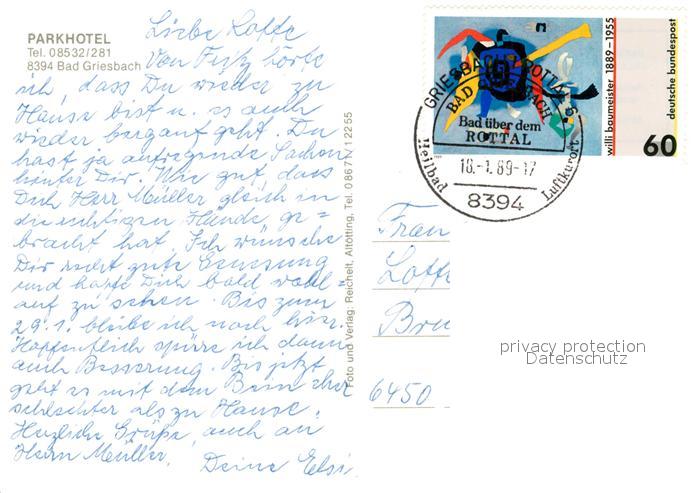 PARKHOTEL
Tel. 08532/281
8394 Bad Griesbach
Liebe Lotte
Von Fritz hörte
ich, dass Du wieder zu
Hause bist u. es auch
wieder bergauf geht. Du
hast ja aufregende Sachen
hinter Dir. Wie gut, dass
Dich Herr Müller gleich in
die richtigen Hände ge=
bracht hat. Ich wünsche
Dir recht gute Genesung
und hoffe Dich bald wohl=
auf zu sehen. Bis zum
29.1. bleibe ich noch hier.
Hoffentlich spüre ich dann
auch Besserung. Bis jetzt
geht es mit dem Bein eher
schlechter als zu Hause.
Herzliche Grüße, auch an
Herrn Müller.
Deine Elsi
Foto und Verlag: Reichelt, Altötting, Tel. 08671/12255
willi baumeister 1889-1955
deutsche bundespost
60
Bad über dem
ROTTAL
18.-1.89-17
Heilbad
Luftkurort
8394
Frau
Lotte
6450
privacy protection
Datenschutz